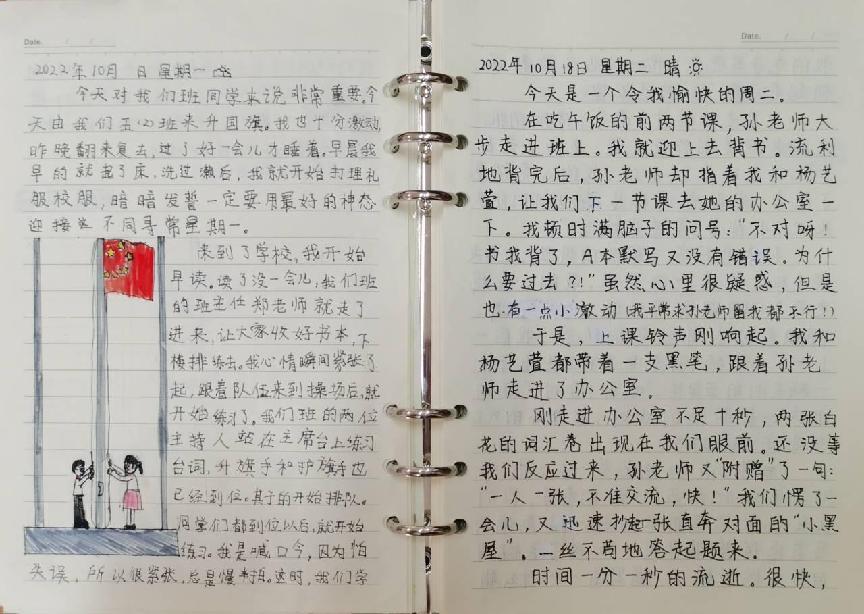 Date.
2022年10月 日 星期一
今天对我们班同学来说非常重要,今
天由我们五(2)班来升国旗。我也十分激动,
昨晚翻来复去,过了好一会儿才睡着。早晨我
早的就起了床,洗过漱后,我就开始打理礼
服校服,暗暗发誓一定要用最好的神态
迎接这不同寻常星期一。
来到了学校,我开始
早读。读了没一会儿,我们班
的班主任郑老师就走了
进来,让大家收好书本,下
楼排练去。我心情瞬间紧张了
起,跟着队伍来到操场后,就
开始练习了。我们班的两位
主持人站在主席台上练习
台词,升旗手和护旗手也
已经到位。其于的开始排队。
同学们都到位以后,就开始
练习。我是喊口令,因为怕
失误,所以很紧张,总是慢半拍。这时,我们学
Date.
2022年10月18日 星期二 晴
今天是一个令我愉快的周二。
在吃午饭的前两节课,孙老师大
步走进班上。我就迎上去背书。流利
地背完后,孙老师却指着我和杨艺
萱,让我们下一节课去她的办公室一
下。我顿时满脑子的问号:"不对呀!
书我背了,A本默写又没有错误。为什
么要过去?!"虽然心里很疑惑,但是
也有一点小激动(我平常求孙老师留我都不行!)
于是,上课铃声刚响起。我和
杨艺萱都带着一支黑笔,跟着孙老
师走进了办公室。
刚走进办公室不足十秒,两张白
花的词汇卷出现在我们眼前。还没等
我们反应过来,孙老师又"附赠"了一句:
"一人一张,不准交流,快!"我们愣了一
会儿,又迅速抄起一张直奔对面的"小黑
屋"。一丝不苟地答起题来。
时间一分一秒的流逝。很快,